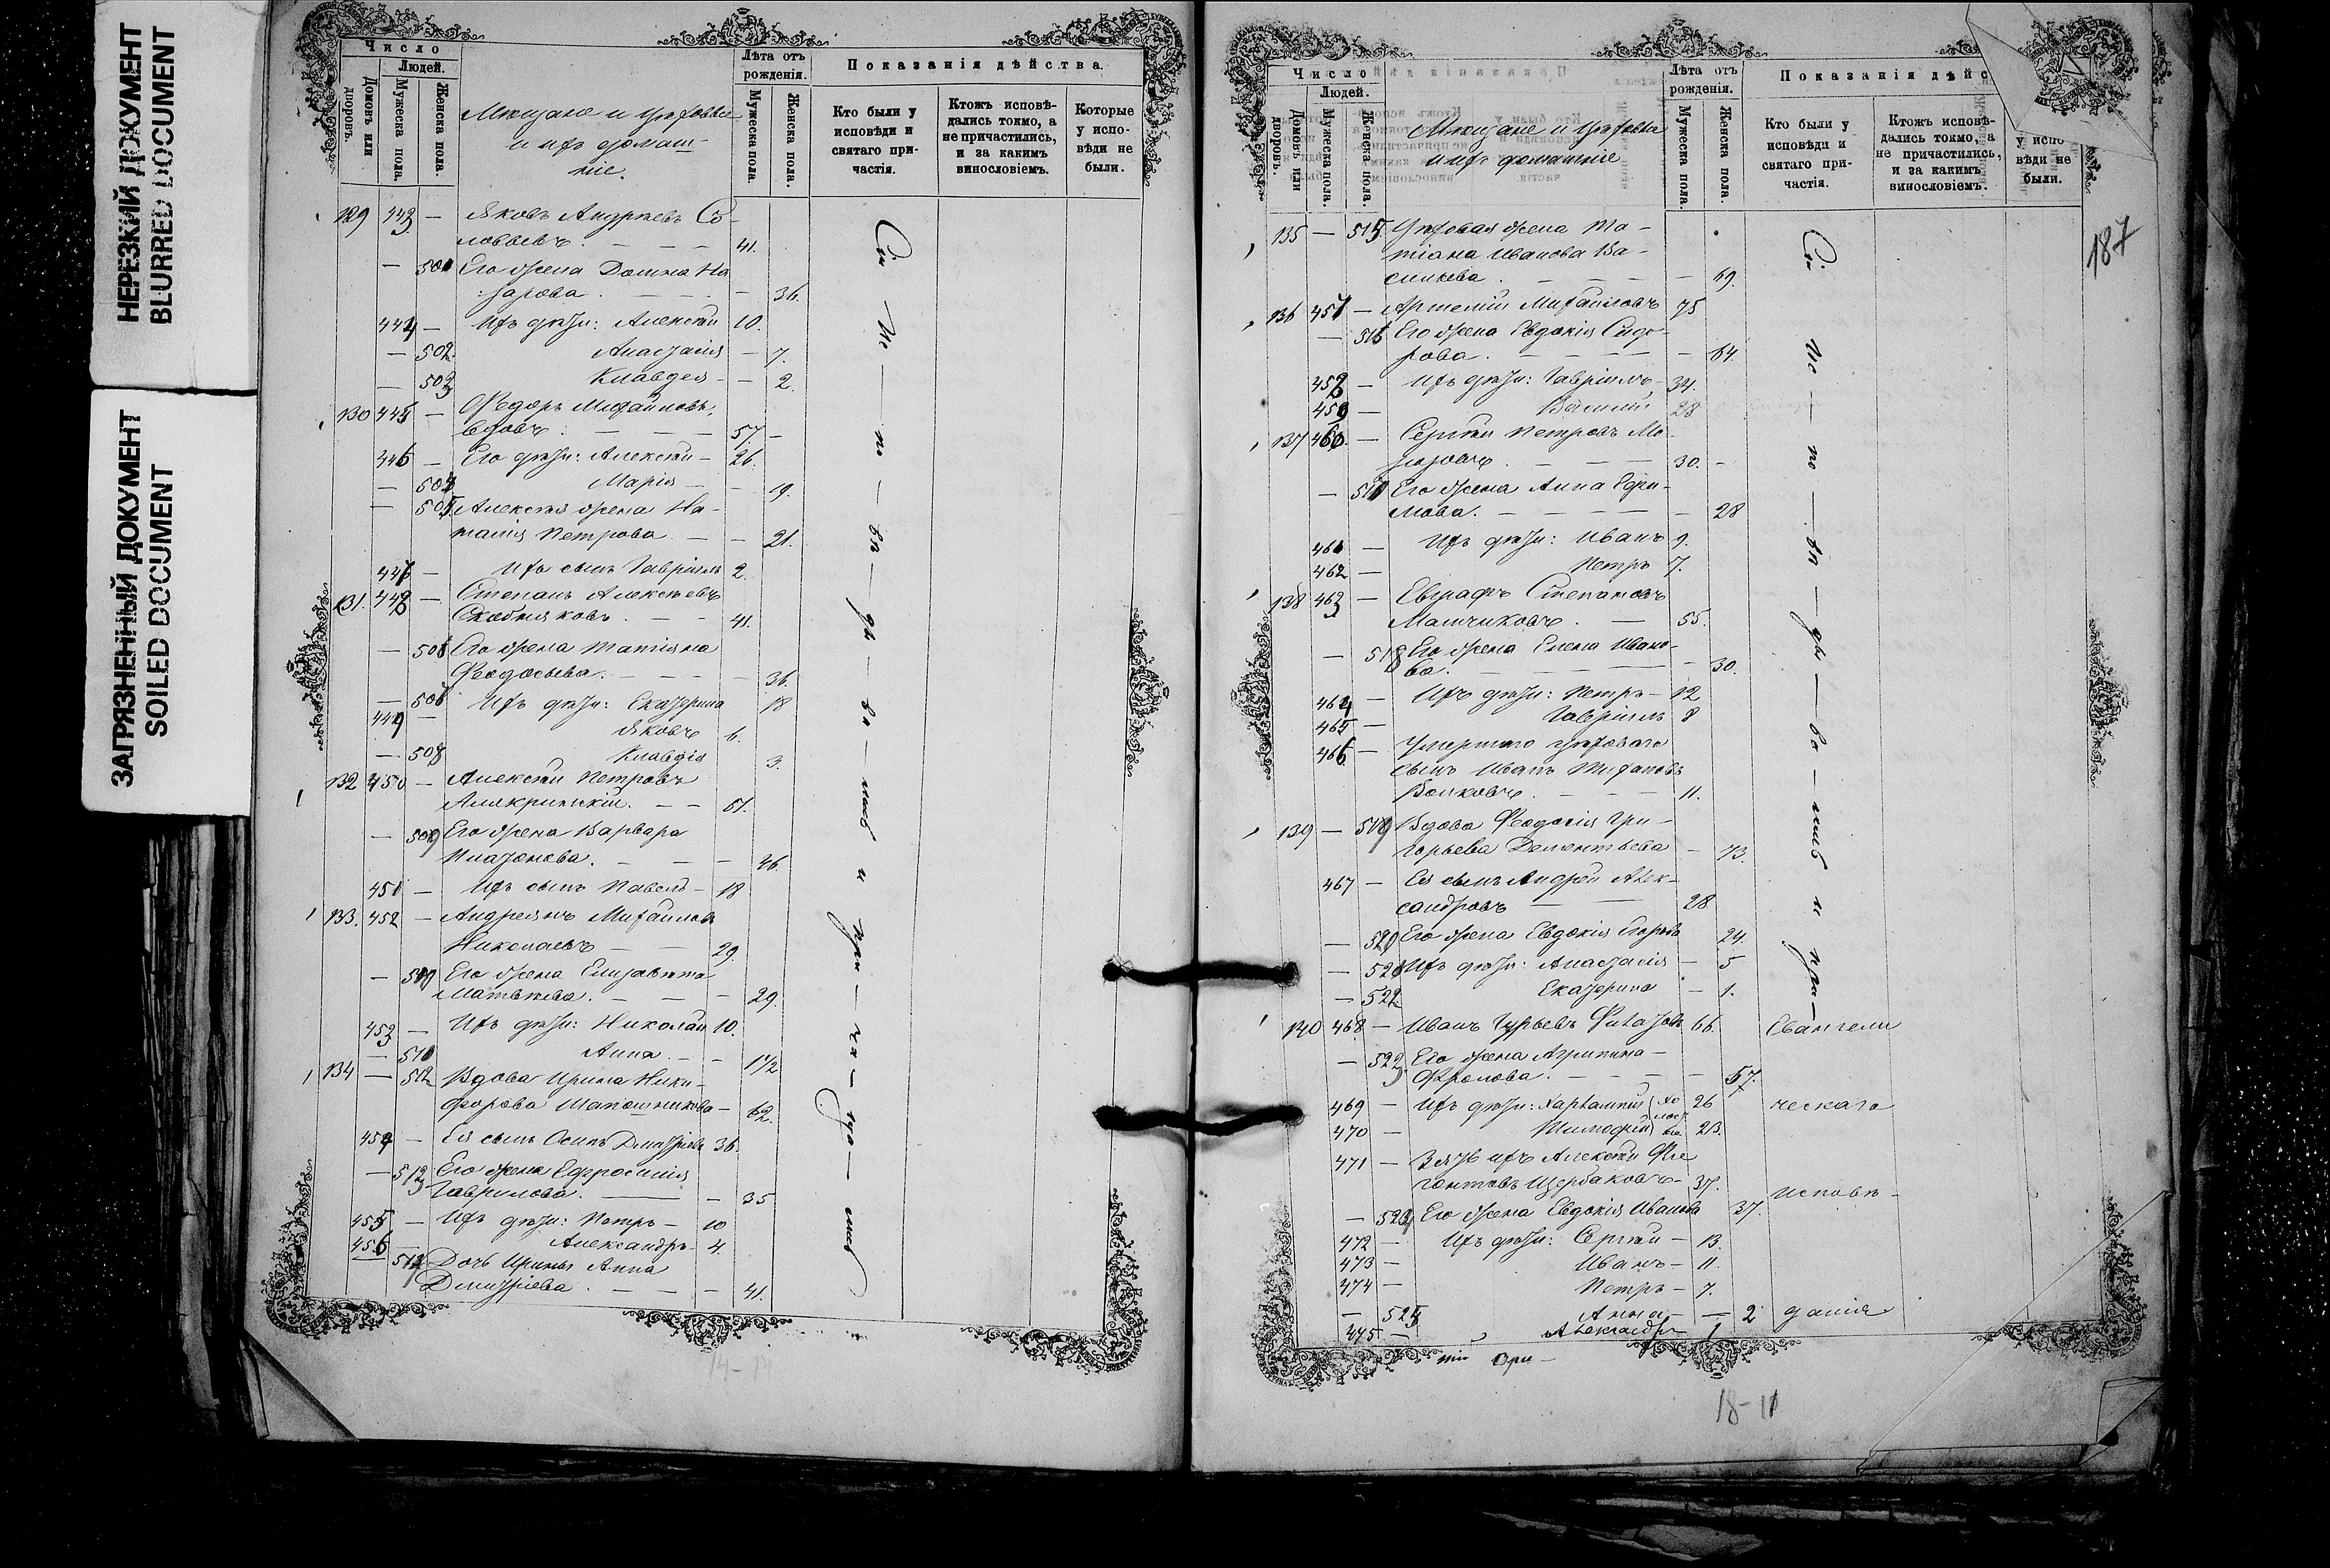 НЕРЕЗКИЙ ДОКУМЕНТ
BLURRED DOCUMENT
ЗАГРЯЗНЕННЫЙ ДОКУМЕНТ
SOILED DOCUMENT
Число
Людей.
Домовъ или дворовъ.
Мужеска пола.
Женска пола.
Мѣщане и цѣховые
и ихъ домаш-
ніе.
Лѣта отъ
рожденія.
Мужеска пола.
Женска пола.
Показанія дѣйства.
Кто были у
исповѣди и
святаго при-
частія.
Ктожъ исповѣ-
дались токмо, а
не причастились,
и за какимъ
винословіемъ.
Которые
у испо-
вѣди не
были.
129 443 — Яковъ Андреевъ Со-
ловьевъ. — — — 41.
— 501 Его жена Домна На-
зарова. — — — 36.
444 — Ихъ дѣти: Алексѣй 10.
— 502 Анастасія — 7.
— 503 Клавдія — 2.
130 445 — Ѳедоръ Михайловъ,
вдовъ. — — — 57. —
446 — Его дѣти: Алексѣй — 26.
— 504 Марія — — 19.
— 505 Алексѣя жена На-
талія Петрова — — 21.
447 — Ихъ сынъ Гавріилъ 2.
131. 448 — Степанъ Алексѣевъ
Скобняковъ. — — 41.
— 506 Его жена Татіяна
Ѳеодосьева. — — — 36.
— 506 Ихъ дѣти: Екатерина 18
449 — Яковъ 6.
— 508 Клавдія 3.
132 450 — Алексѣй Петровъ
Алякринскій. — — 51.
— 509 Его жена Варвара
Платонова. — — — 46.
451 — Ихъ сынъ Павелъ — 18
133. 452 — Андреянъ Михайловъ
Николаевъ — — 29.
— 510 Его жена Елизавета
Матвѣева. — — — 29.
453 — Ихъ дѣти: Николай 10.
— 511 Анна. — — 1 1/2
134 — 512 Вдова Ирина Ники-
форова Шапошникова — 62.
454 — Ея сынъ Осипъ Дмитріевъ 36.
— 513 Его жена Ефросинія
Гаврилова. — — 35
455 — Ихъ дѣти: Петръ — 10
456 — Александръ — 4.
514 Дочь Ирины Анна
Дмитріева. — — — 41.
Сіи ис — по — вѣ — ды — ва — лись и при — ча — ща — лись
Число
Людей.
Домовъ или дворовъ.
Мужеска пола.
Женска пола.
Мѣщане и цѣховые
и ихъ домашніе
Лѣта отъ
рожденія.
Мужеска пола.
Женска пола.
Показанія дѣйс
Кто были у
исповѣди и
святаго при-
частія.
Ктожъ исповѣ-
дались токмо, а
не причастились,
и за какимъ
винословіемъ.
у испо
вѣди не
были.
187
135 — 515 Цѣховая жена Та-
тіана Иванова Ва-
сильева. — — — 69.
136 457 — Артемій Михайловъ 75
— 516 Его жена Евдокія Сидо-
рова. — — — — 64.
458 — Ихъ дѣти: Гавріилъ — 34.
459 — Василій 28
137 460. — Сергѣй Петровъ Мо-
розовъ. — — — 30. —
— 517 Его жена Анна Ефи-
мова. — — — — 28
461 — Ихъ дѣти: Иванъ 9.
462 — Петръ 7.
138 463 — Евграфъ Степановъ
Мальчиковъ. — 55.
— 518 Его жена Елена Ивано-
ва. — — — 30.
464 — Ихъ дѣти: Петръ — 12
465 — Гавріилъ 8
466 — Умершаго цѣховаго
сынъ Иванъ Тихановъ
Волковъ. — — — 11.
139 — 519 Вдова Ѳеодосія Гри-
горьева Дементьева — 73.
467 — Ея сынъ Андрей Алек-
сандровъ — — 28
— 520 Его жена Евдокія Егорова 24.
— 521 Ихъ дѣти: Анастасія — 5
— 522 Екатерина — 1.
140 468 — Иванъ Гурьевъ 66.
— 523 Его жена Агрипина —
Фролова. — — — — 57.
469 — Ихъ дѣти: Харлампій 26
470 — Тимофей 23.
471 — Зять ихъ Алексѣй Фле-
гонтовъ Щербаковъ — 37.
— 524 Его жена Евдокія Иванова 37.
472 — Ихъ дѣти: Сергѣй — 13.
473 — Иванъ — 11.
474 — Петръ — 7.
— 525 Анна — — 2
475 — Александръ 1
Сіи ис — по — вѣ — ды — ва — лись и при —
Евангели
ческаго
исповѣ-
данія
18-11